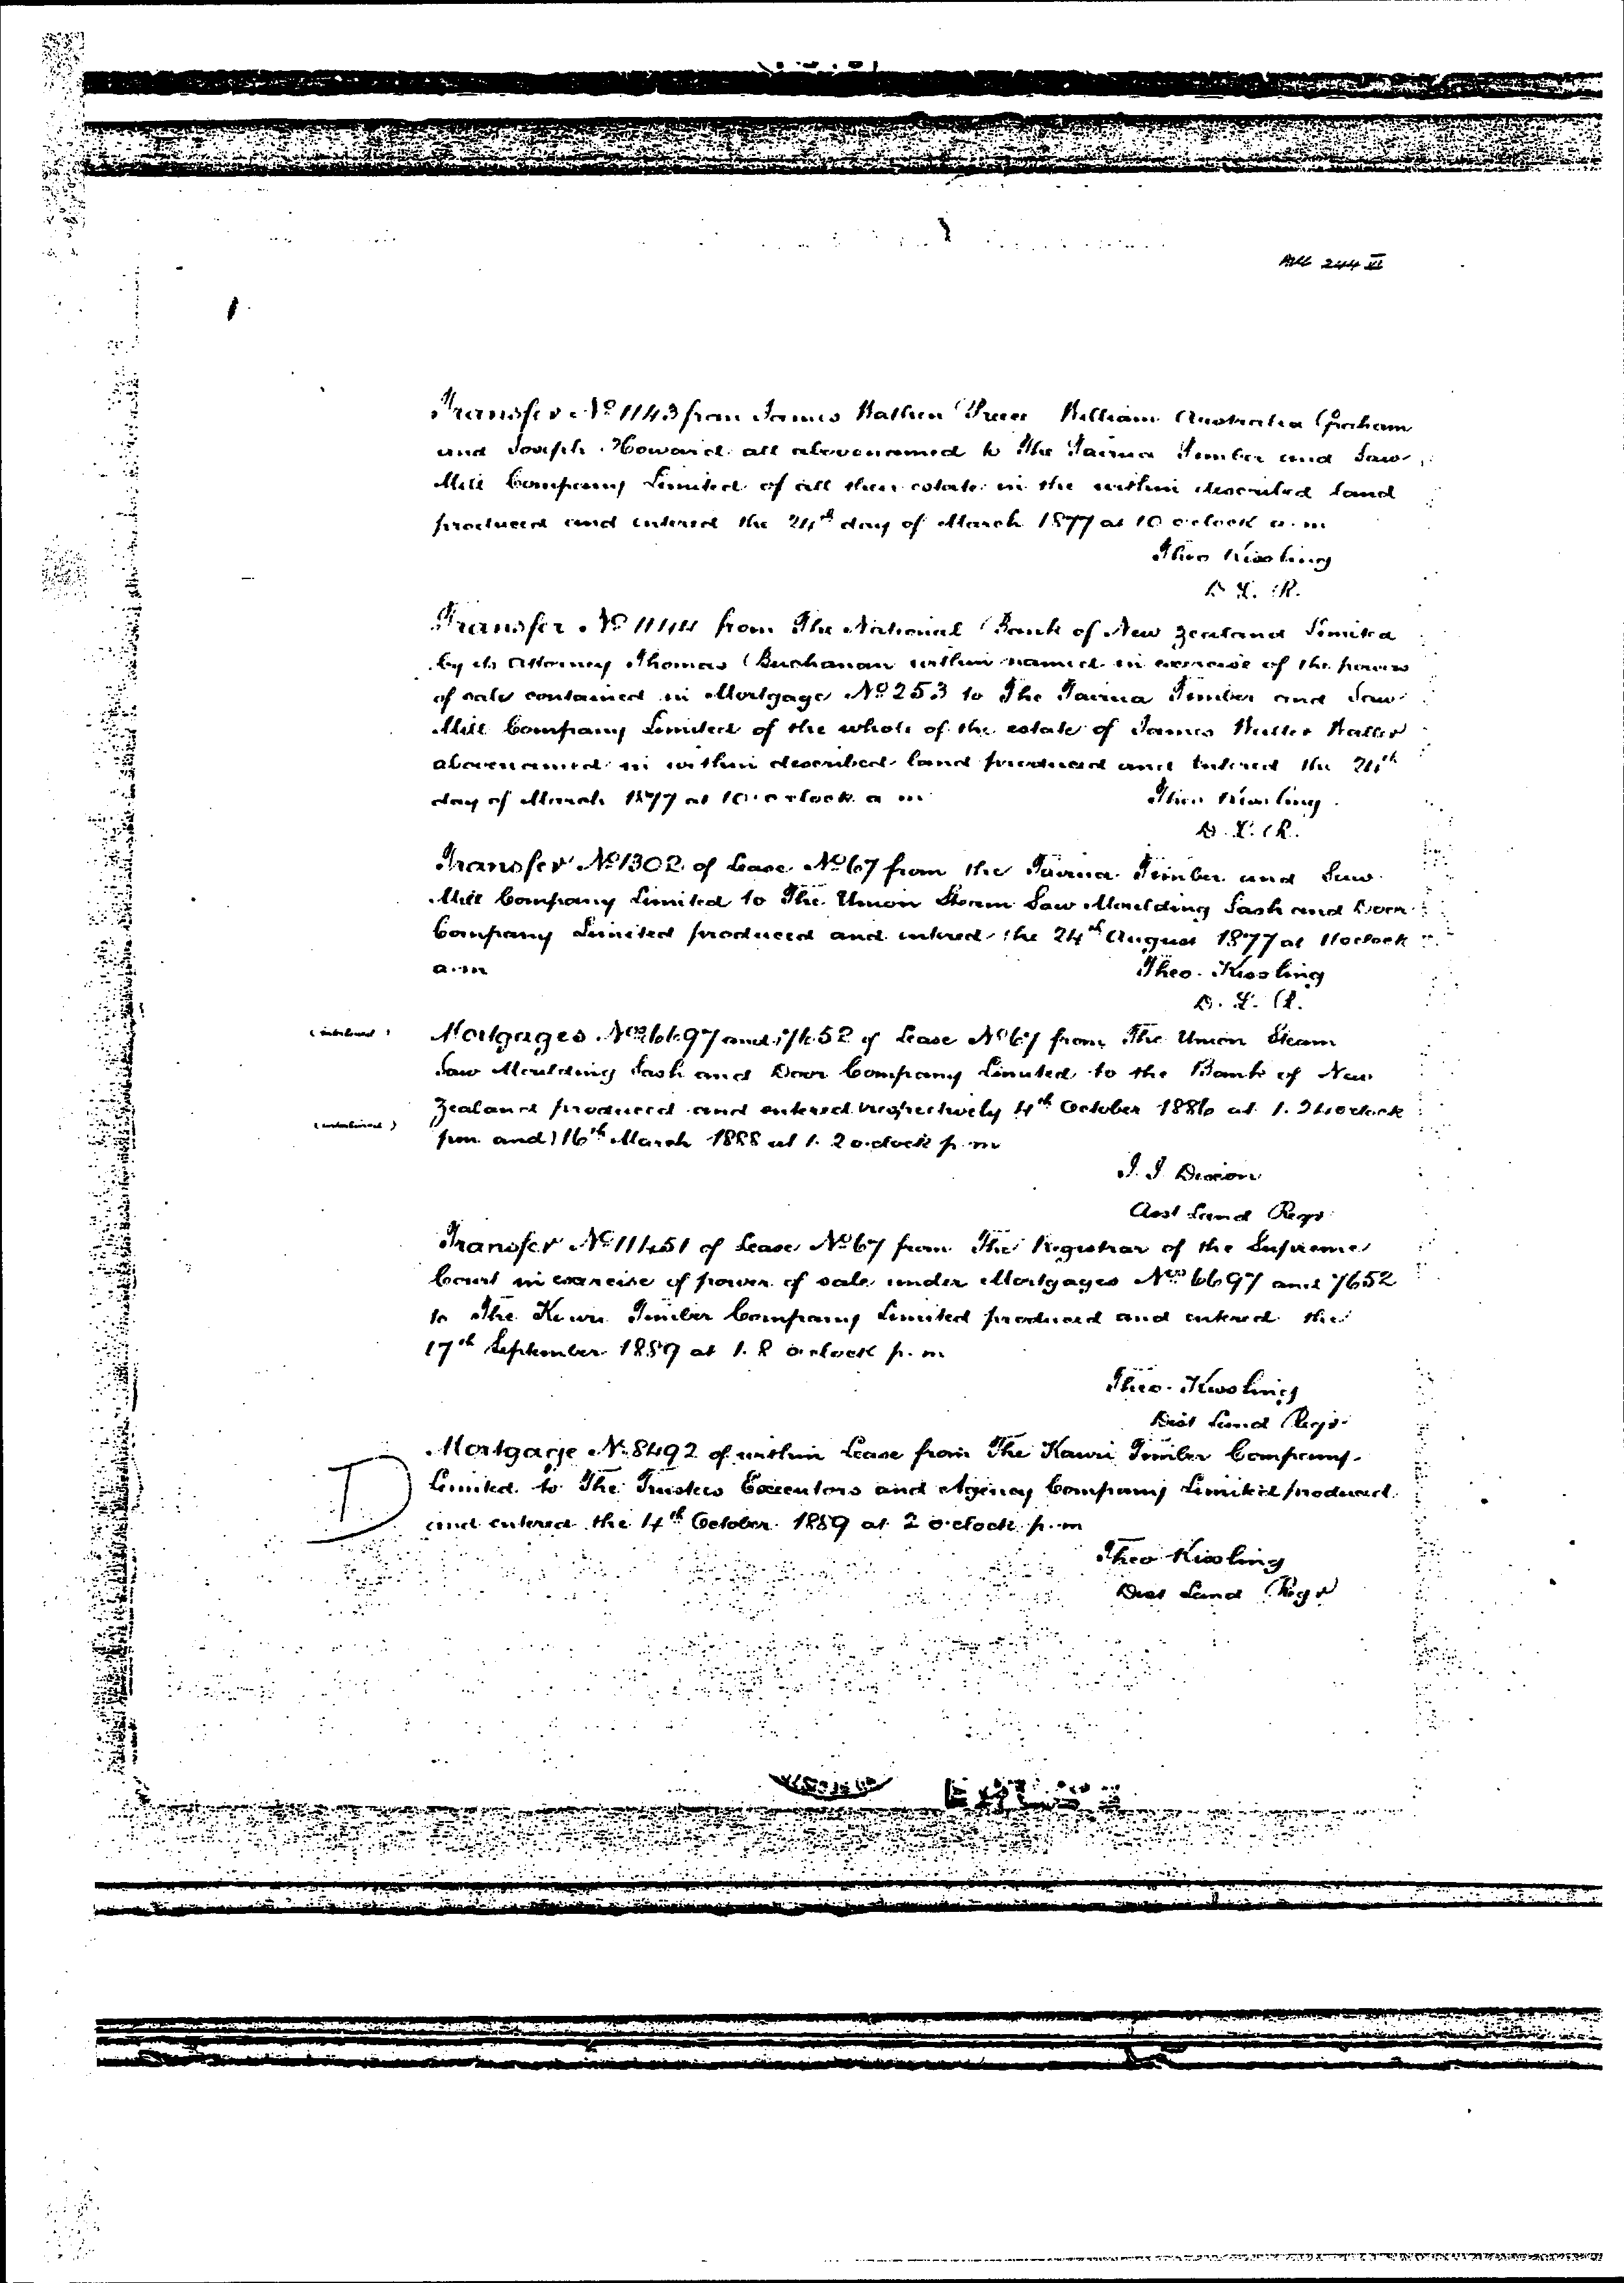 244 VI
Transfer No 1143 from James Mathew William Australia Graham
and Joseph Howard all abovenamed to The Tairua Timber and Saw
Mill Company Limited of all their estate in the within described land
produced and entered the 24th day of March 1877 at 10 oclock a.m
Theo Kissling
D. L. R.
Transfer No 1144 from The National Bank of New Zealand Limited
by its Attorney Thomas Buchanan within named in exercise of the powers
of sale contained in Mortgage No 253 to The Tairua Timber and Saw
Mill Company Limited of the whole of the estate of James
abovenamed in within described land produced and entered the 24th
day of March 1877 at 10 o'clock a m
Theo Kissling
D. L. R.
Transfer No 1302 of Lease No 67 from the Tairua Timber and Saw
Mill Company Limited to The Union Steam Saw Moulding Sash and Door
Company Limited produced and entered the 24th August 1877 at 11 oclock
a.m
Theo. Kissling
D. L. R.
(interlined) Mortgages Nos 6697 and 7652 of Lease No 67 from The Union Steam
Saw Moulding Sash and Door Company Limited to the Bank of New
Zealand produced and entered respectively 4th October 1886 at oclock
(interlined) pm and) 16th March 1888 at 1. 2 o.clock p.m
Asst Land Regr
Transfer No 11451 of Lease No 67 from The Registrar of the Supreme
Court in exercise of power of sale under Mortgages Nos 6697 and 7652
to The Kauri Timber Company Limited produced and entered the
17th September 1889 at 1. 8 o'clock p. m
Theo. Kissling
Dist Land Regr
Mortgage No 8492 of within Lease from The Kauri Timber Company
D Limited to The Trustees Executors and Agency Company Limited produced
and entered the 4th October 1889 at 2 o'clock p.m
Theo Kissling
Dist Land Regr